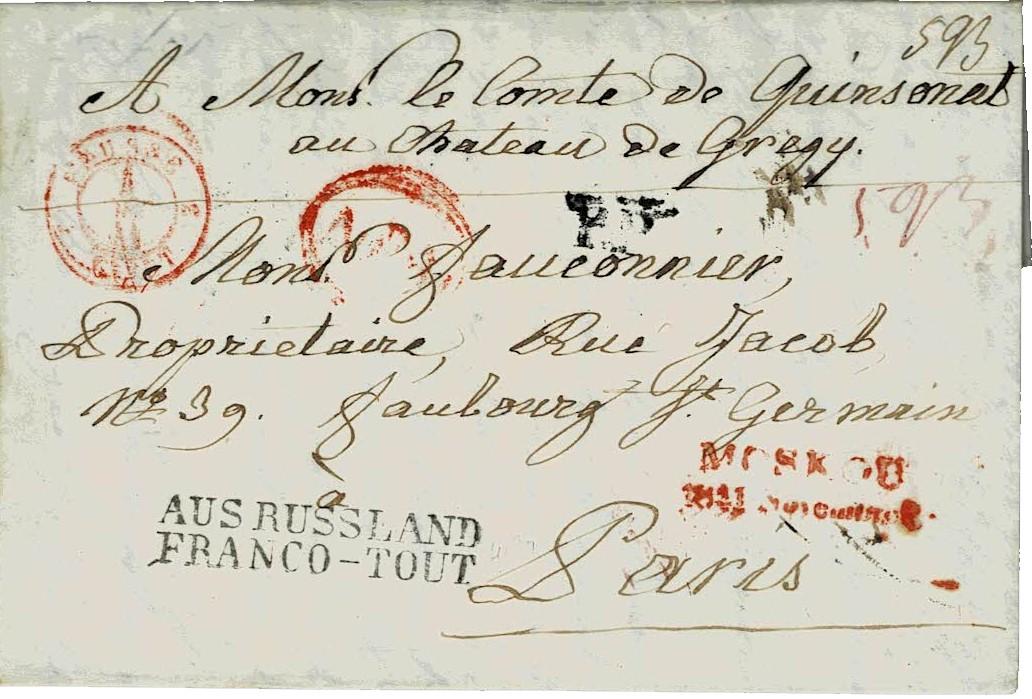 593
A Mons. le Comte de Quinsonat
au Chateau de Gregy.
593
P.P.
Mons. Fauconnier,
Proprietaire, Rue Jacob
No 39. Faubourg St Germain
a
MOSKOU
1841
AUS RUSSLAND
FRANCO-TOUT
Paris